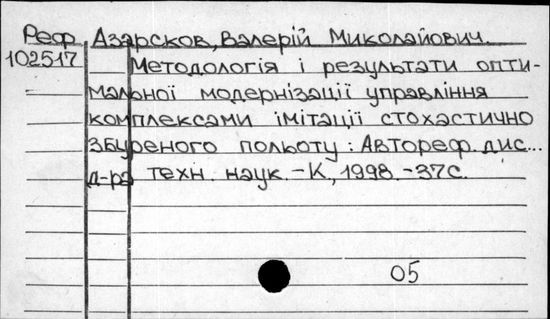 Реф Азарсков, Валерій Миколайович.
102517 Методологія і результати опти-
мальної модернізації управління
комплексами імітації стохастично
збуреного польоту : Автореф. дис...
д-ра техн. наук. - К, 1998. - 37с.
05